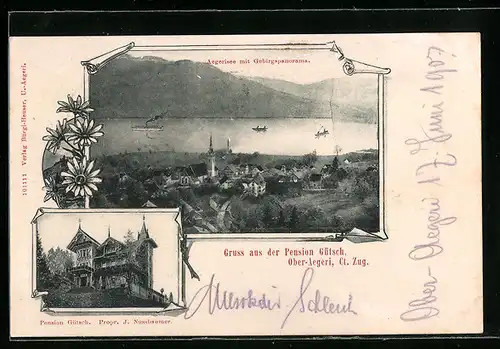 Aegerisee mit Gebirgspanorama.
101111 Verlag Bürgi-Henser, U.-Aegeri.
Gruss aus der Pension Gütsch,
Ober-Aegeri, Ct. Zug.
Pension Gütsch. Propr. J. Nussbaumer.
Ober-Aegeri 17. Juni 1907